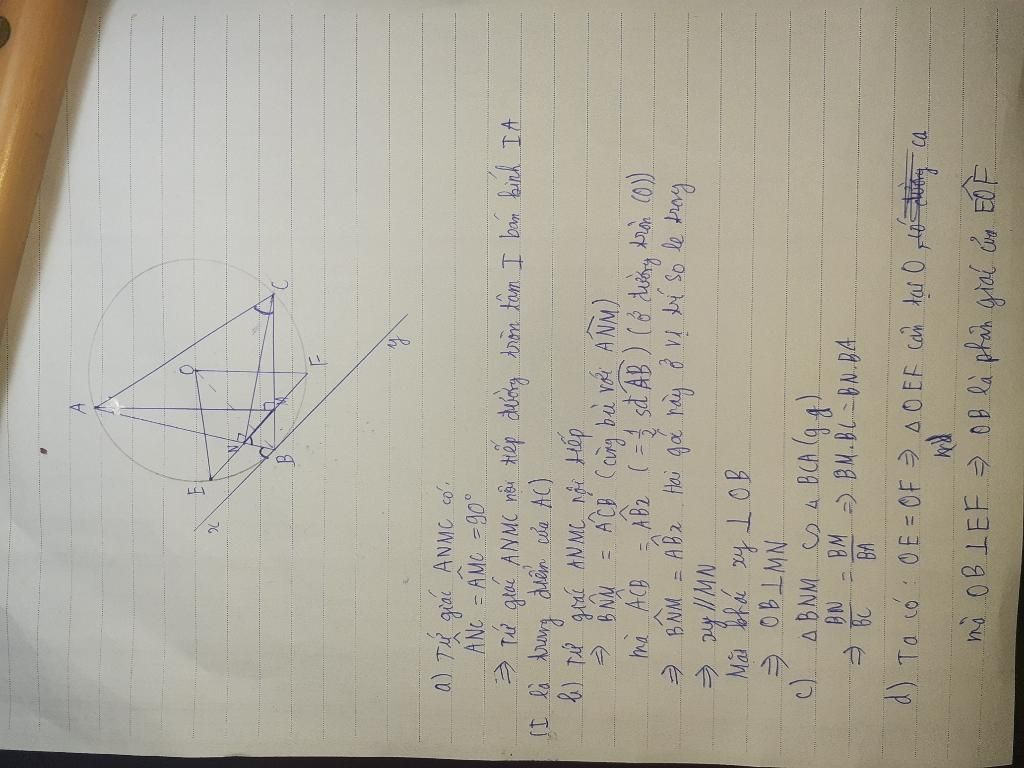 A
E
O
C
N
M
B
F
x
y
a) Tứ giác ANMC có:
ANC = AMC = 90°
⇒ Tứ giác ANMC nội tiếp đường tròn tâm I bán kính IA
(I là trung điểm của AC)
b) Tứ giác ANMC nội tiếp
⇒ BNM = ACB (cùng bù với ANM)
mà ACB = ABx (= 1/2 sđ AB) (ở đường tròn (O))
⇒ BNM = ABx Hai góc này ở vị trí so le trong
⇒ xy//MN
Mặt khác xy ⊥ OB
⇒ OB ⊥ MN
c) △BNM ∽ △BCA (g.g)
⇒ BN/BC = BM/BA ⇒ BM.BC = BN.BA
d) Ta có: OE = OF ⇒ △OEF cân tại O, có
mà OB ⊥ EF ⇒ OB là phân giác của EOF